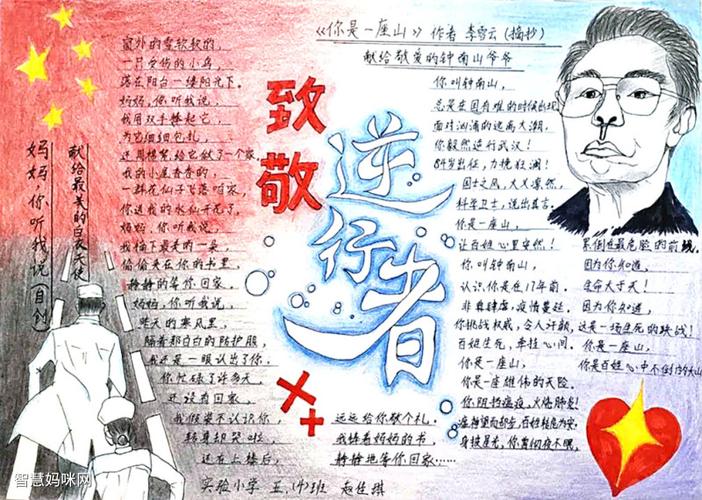 妈妈，你听我说（自创）
献给最美的白衣天使
窗外的雪软软的，
一只受伤的小鸟，
落在阳台一缕阳光下。
妈妈，你听我说，
我用双手捧起它，
为它细细包扎，
还用棉絮给它做了一个家。
我的小屋香香的，
一群花仙子飞落咱家，
你送我的水仙开花了，
妈妈，你听我说，
我摘下最美的一朵，
偷偷夹在你的书里，
静静的等你回家。
妈妈，你听我说，
昨天的寒风里，
隔着那白白的防护服，
我还是一眼认出了你，
你忙碌了许多天，
还没有回家，
我假装不认识你，
转身却哭啦，
还在上楼后，
远远给你敬个礼。
我捧着妈妈的书，
静静地等你回家……
致敬
逆行者
《你是一座山》作者 李雪云（摘抄）
献给敬爱的钟南山爷爷
你叫钟南山，
总是在国有难的时候出现，
面对汹涌的返高大潮，
你毅然逆行武汉！
84岁出征，力挽狂澜！
国士之风，大义凛然，
科学卫士，说出真言。
你是一座山，
让百姓心里安然！
你叫钟南山，
认识你是在17年前。
非典肆虐，疫情蔓延，
你挑战权威，令人汗颜，
百姓生死，牵挂心间。
你是一座山，
你是一座雄伟的天险。
你阻挡瘟疫，火烙肺炎！
身披星光，你贯彻夜不眠，
累倒在最危险的前线。
因为你知道，
生命大于天！
因为你知道，
这是一场生死的决战！
你是一座山，
你是百姓心中不倒的大山
实验小学 五.(4)班 赵佳琪
智慧妈咪网